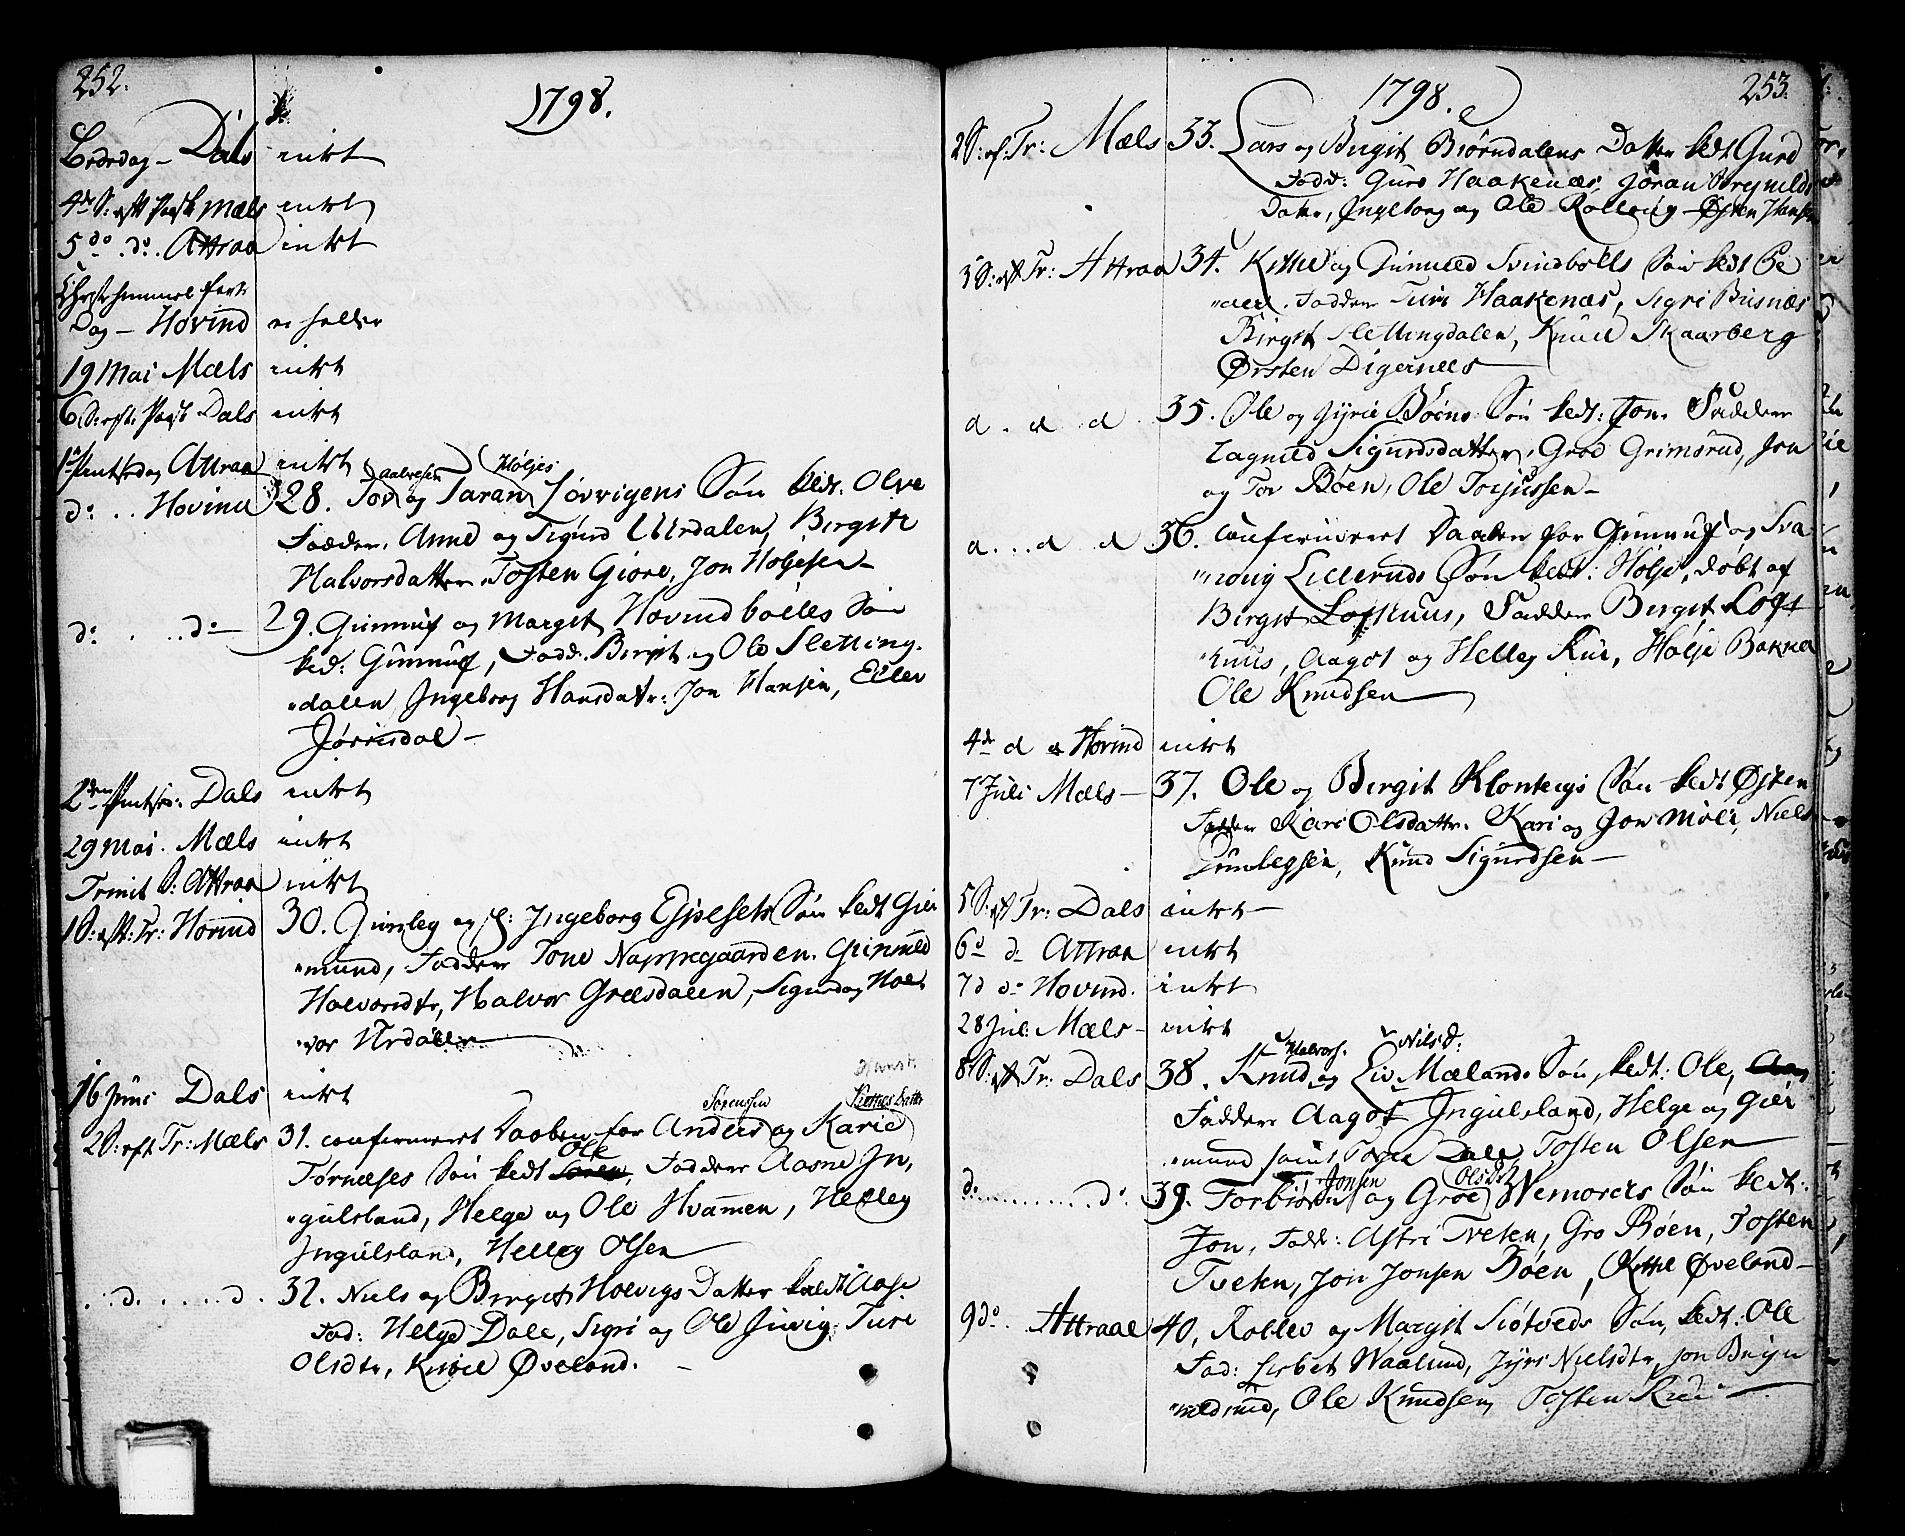 252.
1798.
Bededag - Dals intet
4de S: eft Pask Mæls intet
5 do. do. Attraa intet
Christi himmel farts
Dag - Hovind ei heller
19 Mai Mæls intet
6 S: eft: Pask Dals intet
1 Pintsedag Attraa intet
Aalvesen Høljes
do. . . Hovind 28. Tov og Taran Løvvigens Søn kedt. Olve
Fadder. Anne og Sigurd Urdalen, Birgit
Halvorsdatter Tosten Giøre, Jon Holjesen
do. . . do 29. Gunnuf og Margit Hovindbøles Søn
ked: Gunnuf, Fadd. Birgit og Ole Sletting-
"dalen Ingeborg Hansdatr: Jon Hansen, Eilev
Jørrisdal -
2den Pintse: Dals intet
29 Mai. Mæls intet
Trinit S: Attraa intet
1 S: eft: Tr: Hovind 30. Gunleg og Ingeborg Espesets Søn kedt Gier
"mund, Fadder Tone Nappegaarden. Gunnild
Halvorsdtr, Halvor Græsdalen, Sigurd og Hal
"vor Urdalen
16 Juni Dals intet
Sørenssen
2 S: eft Tr: Mæls 31. confirmeret Daaben for Anders og Karie
Ole
Tørnæses Søn kedt Søren, Fadder Aasne In,
"gulsland, Helge og Ole Hvammen, Helleg
Ingulsland, Helleg Olsen
. . d. . . . . d. 32. Niels og Birgit Hvevigs Datter kaldt Aase
Fad: Helge Dale, Sigri og Ole Juvig, Turi
Olsdtr, Kittil Øveland. -
253.
1798.
2 S: ef: Tr: Mæls 33. Lars og Birgit Biørndalens Datter kedt Guro
Fadd: Guro Haakenæs, Jøran
Datr, Ingeborg og Ole Rollevig - Østen Hansen
3 S: eft Tr: Attraa 34. Kittil og Gunnild Svindbølls Søn kedt Pe
"der. Fadder Turi Haakenæs, Sigri Busnæs
Birgit Slettingdalen, Knud Skaarberg
Ørsten Digernæs
d . d . d 35. Ole og Jyrie Bøens Søn kedt: Jon. Fadder
Ragnild Sigurdsdatter, Groe Grimsrud, Jon
og Tov Bøen, Ole Torjussen -
d . . . d . d 36. confirmeret Daaben for Gunnuf og Sva
"noug Lillerud Søn kedt: Holje, døbt af
Birgit Lofthuus, Fadder Birgit Loft
"huus, Aagot og Helleg Rui, Holje Bakka
Ole Knudsen
4de d Hovind intet
7 Juli Mæls - 37. Ole og Birgit Klonteigs Søn kedt Østen
Fadder Kari Olsdatter. Kari og Jon Møli, Niels
Gunlegsen, Knud Sigurdsen -
5 S: eft Tr: Dals intet -
6 d d: Attraa intet
7 d do Hovind. intet
28 Juli Mæls - intet
Halvors. Nilsd:
8 S: eft Tr: Dals 38. Knud og Liv Mælands Søn, kedt: Ole,
Fadder Aagot Ingulsland, Helge og Giei
"mund samt Torje Dale, Tosten Olsen
Jonsen Olsdt
do . . . . . . do. 39. Torbiørn og Groe Wemorks Søn kedt:
Jon, Fadd: Astri Tveten, Gro Bøen, Tosten
Tveten, Jon Jonsen Bøen, Kittil Øveland -
9 do. Attraae 40, Rollev og Margit Siøtveds Søn, kedt: Ole
Fad: Lisbet Waalund, Jyri Nielsdtr, Jon
Ole Knudsen, Tosten